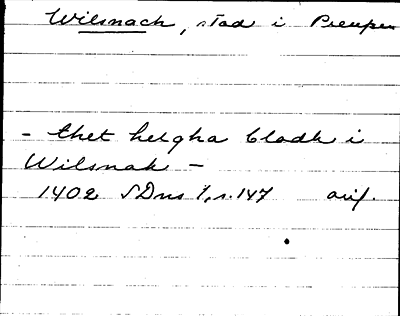 Wilsnach, stad i Preussen
- thet helgha blodh i
Wilsnak -
1402 SDns 1, s. 147 orig.